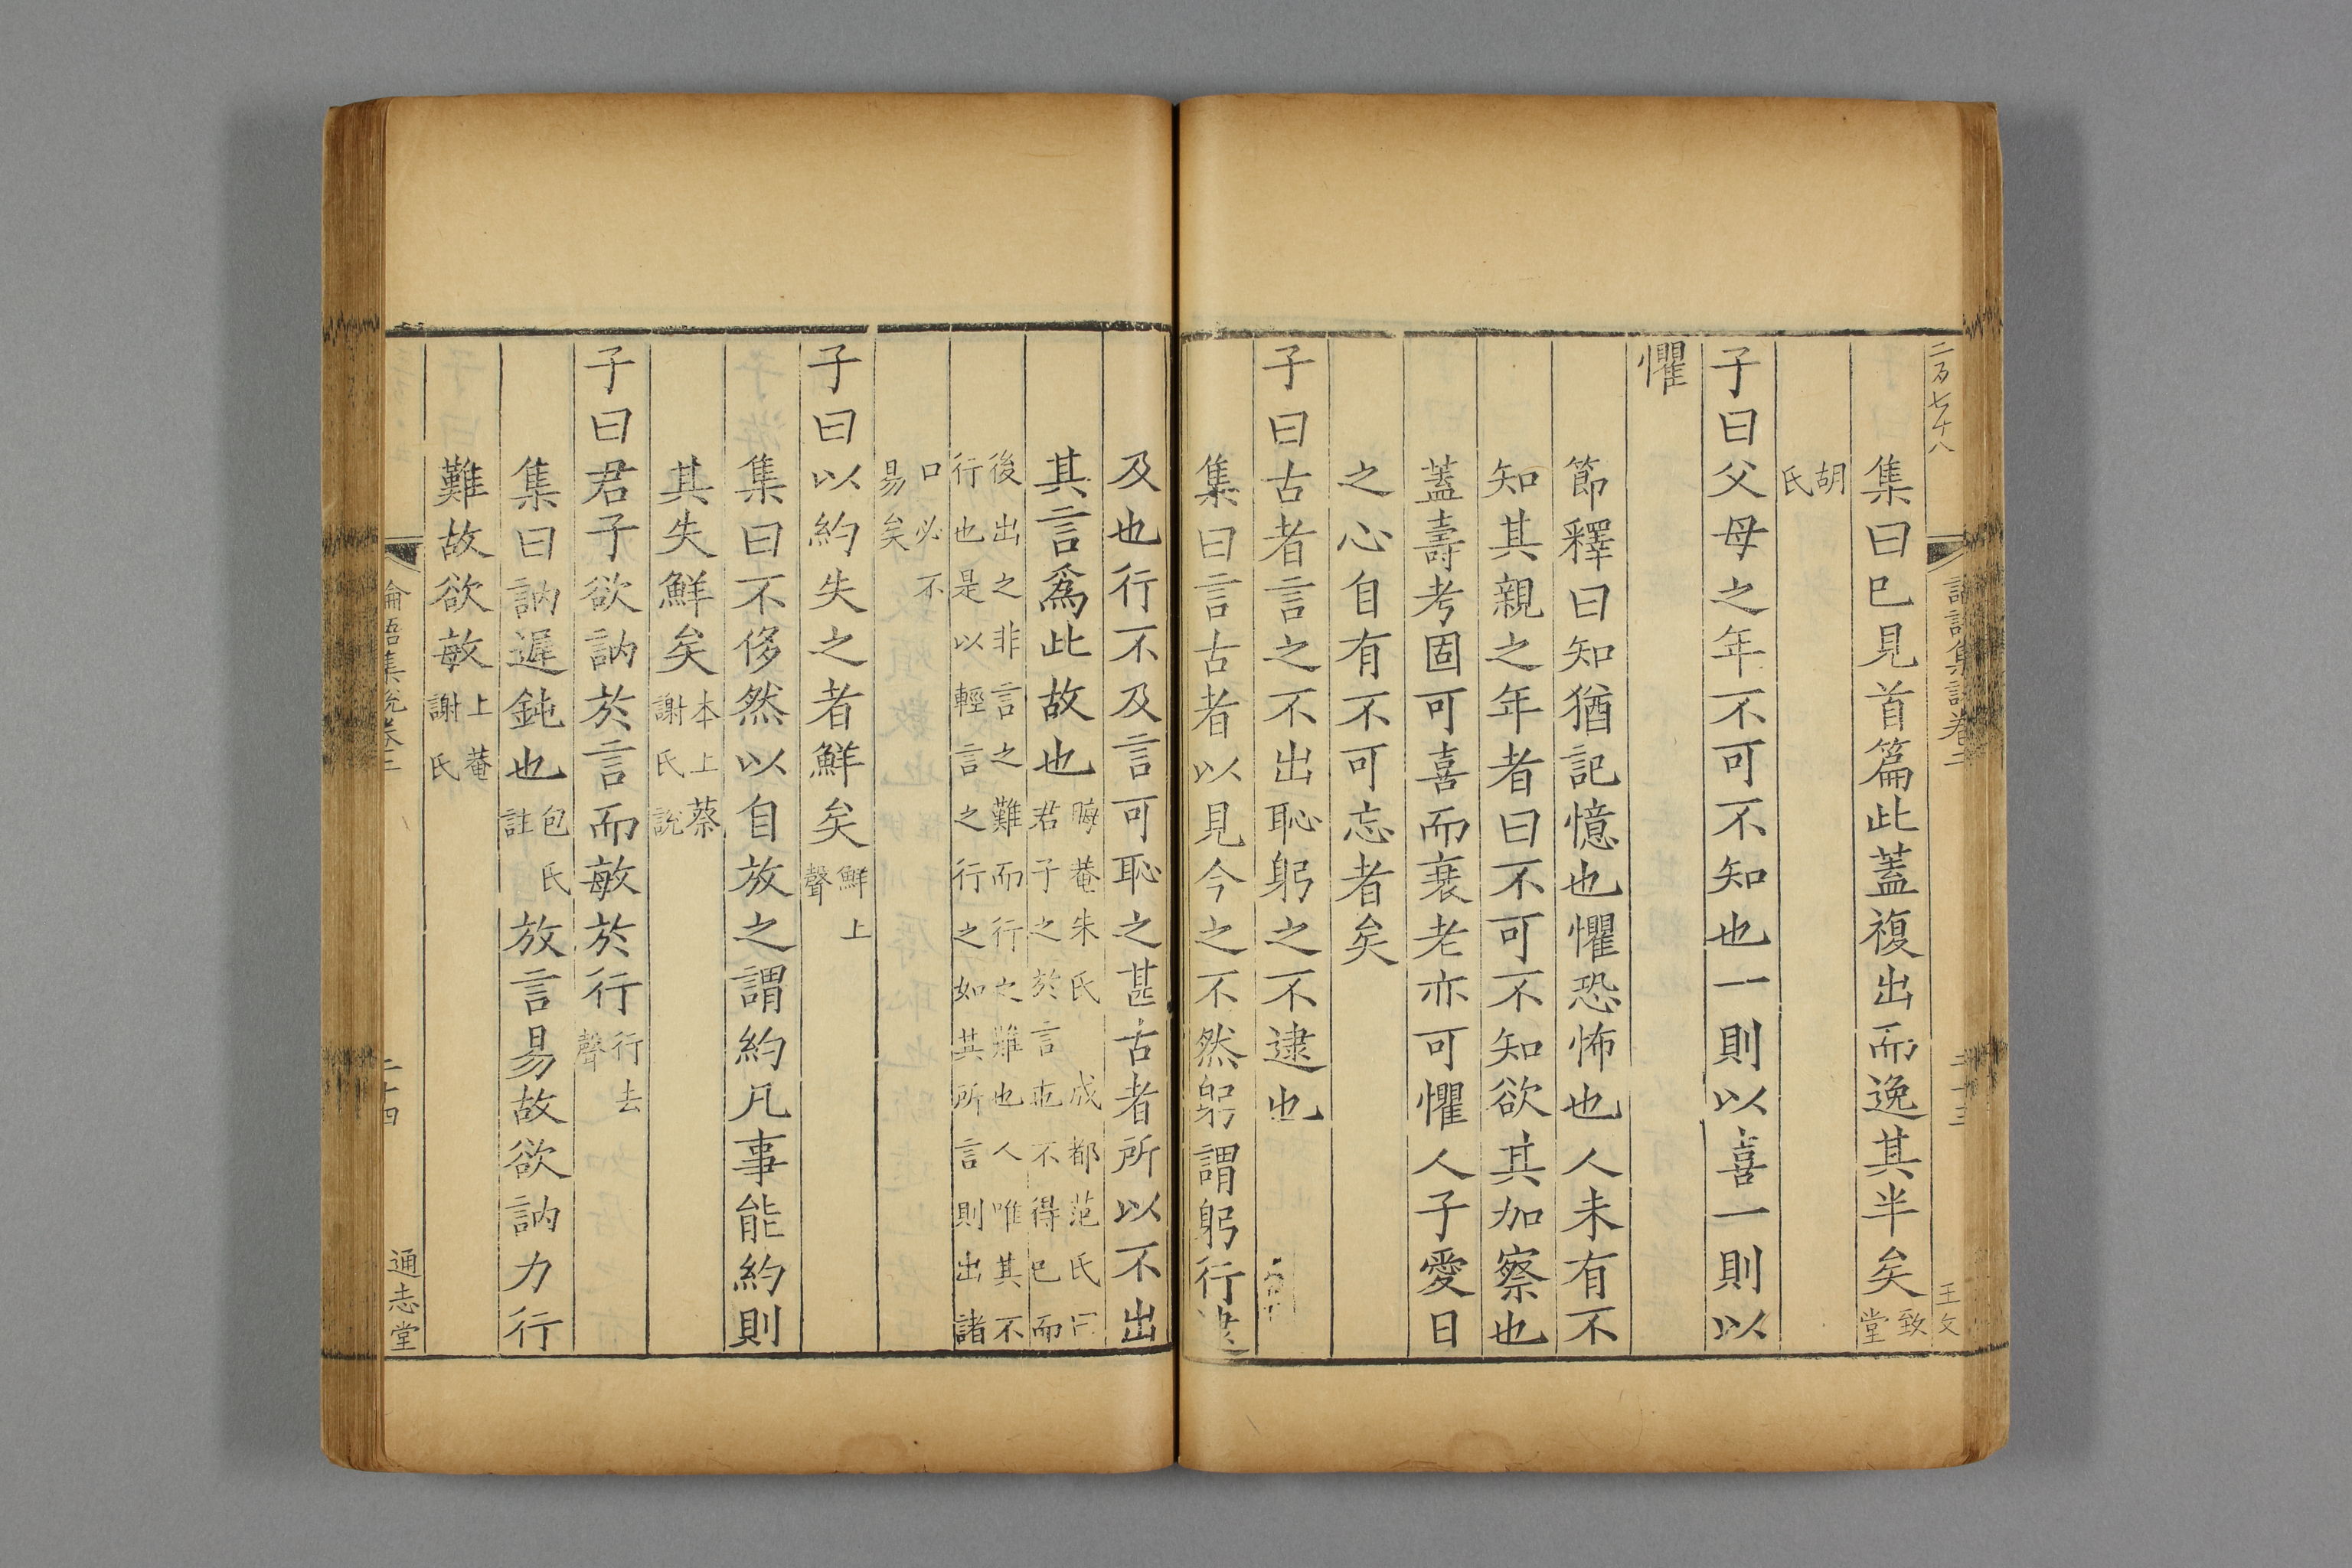 二百七十八
集說卷二
二十三
王文
集曰已見首篇此蓋複出而逸其半矣致堂
胡氏
子曰父母之年不可不知也一則以喜一則以
懼
節釋曰知猶記憶也懼恐怖也人未有不
知其親之年者曰不可不知欲其加察也
蓋壽考固可喜而衰老亦可懼人子愛日
之心自有不可忘者矣
子曰古者言之不出恥躬之不逮也
集曰言古者以見今之不然躬謂躬行逮
及也行不及言可恥之甚古者所以不出
其言為此故也晦菴朱氏 成都范氏曰君子之於言也不得已而
後出之非言之難而行之難也人唯其不行也是以輕言之行之如其所言則出諸
口必不易矣
子曰以約失之者鮮矣鮮上聲
集曰不侈然以自放之謂約凡事能約則
其失鮮矣本上蔡謝氏說
子曰君子欲訥於言而敏於行行去聲
集曰訥遲鈍也包氏註放言易故欲訥力行
難故欲敏上菴謝氏
論語集說卷二
二十四
通志堂